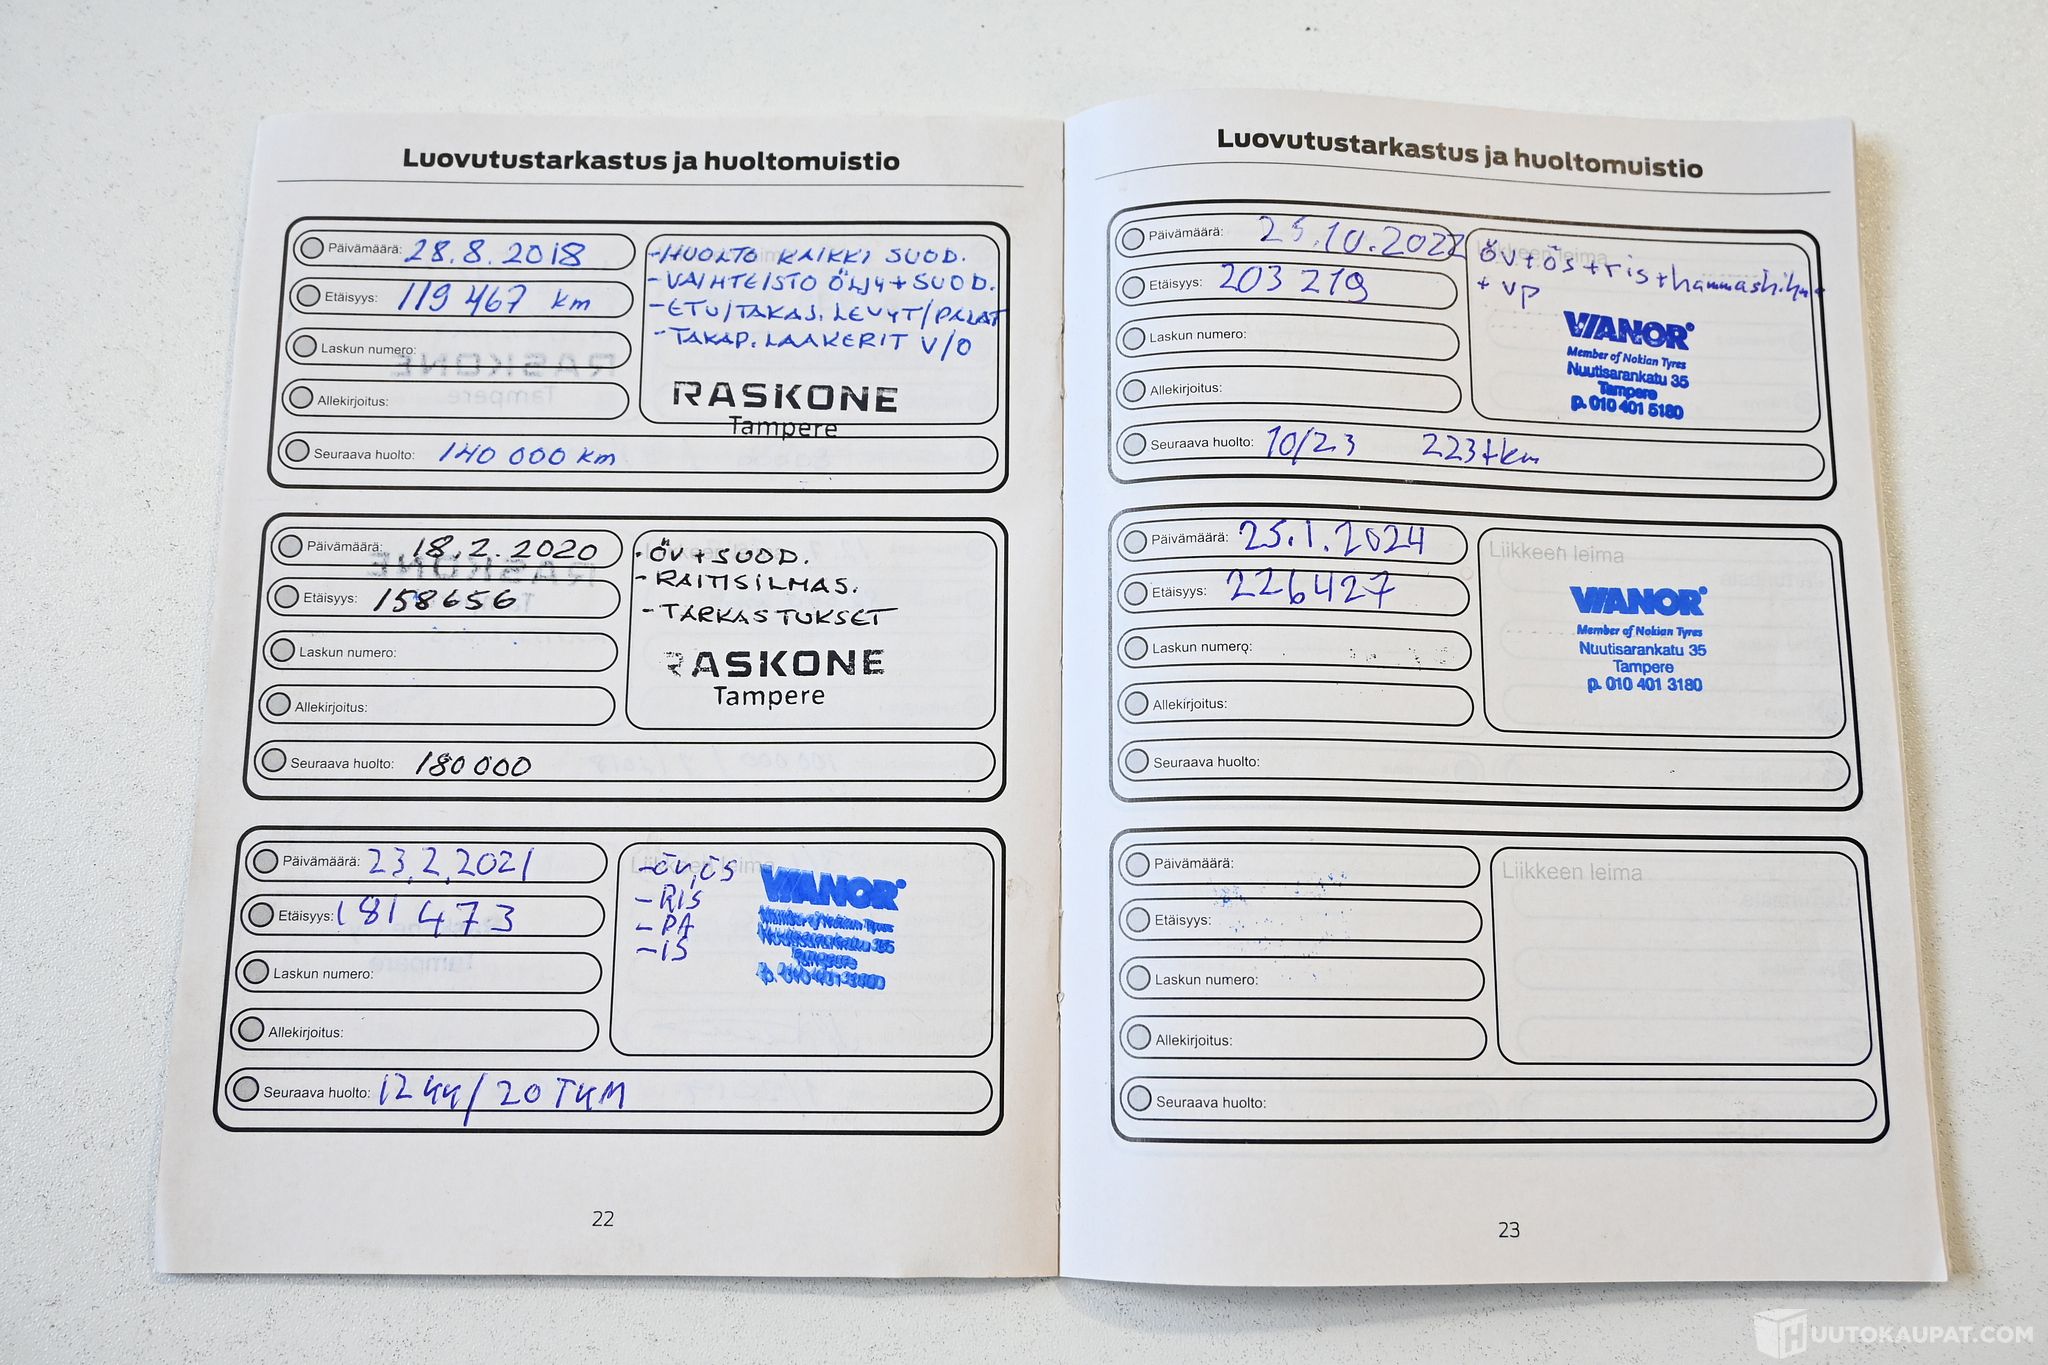 Luovutustarkastus ja huoltomuistio
Päivämäärä: 28.8.2018
Etäisyys: 119 467 km
Laskun numero:
Allekirjoitus:
- HUOLTO KAIKKI SUOD.
- VAIHTEISTO ÖLJY + SUOD.
- ETU/TAKAJ. LEVYT/PALAT
- TAKAP. LAAKERIT V/O
RASKONE
Tampere
Seuraava huolto: 140 000 km
Päivämäärä: 18.2.2020
Etäisyys: 158656
Laskun numero:
Allekirjoitus:
- ÖV + SUOD.
- RAITISILMAS.
- TARKASTUKSET
RASKONE
Tampere
Seuraava huolto: 180 000
Päivämäärä: 23.2.2021
Etäisyys: 181 473
Laskun numero:
Allekirjoitus:
Liikkeen leima
- öv, ös
- RIS
- PA
- IS
VIANOR
Member of Nokian Tyres
Nuutisarankatu 35
Tampere
Seuraava huolto: 12 KK / 20 TKM
22
Luovutustarkastus ja huoltomuistio
Päivämäärä: 25.10.2022
Etäisyys: 203 219
Laskun numero:
Allekirjoitus:
Liikkeen leima
öv + ös + ris + hammashihna
+ vp
VIANOR
Member of Nokian Tyres
Nuutisarankatu 35
Tampere
p. 010 401 5180
Seuraava huolto: 10/23 223tkm
Päivämäärä: 25.1.2024
Etäisyys: 226427
Laskun numero:
Allekirjoitus:
Liikkeen leima
VIANOR
Member of Nokian Tyres
Nuutisarankatu 35
Tampere
p. 010 401 3180
Seuraava huolto:
Päivämäärä:
Etäisyys:
Laskun numero:
Allekirjoitus:
Liikkeen leima
Seuraava huolto:
23
HUUTOKAUPAT.COM